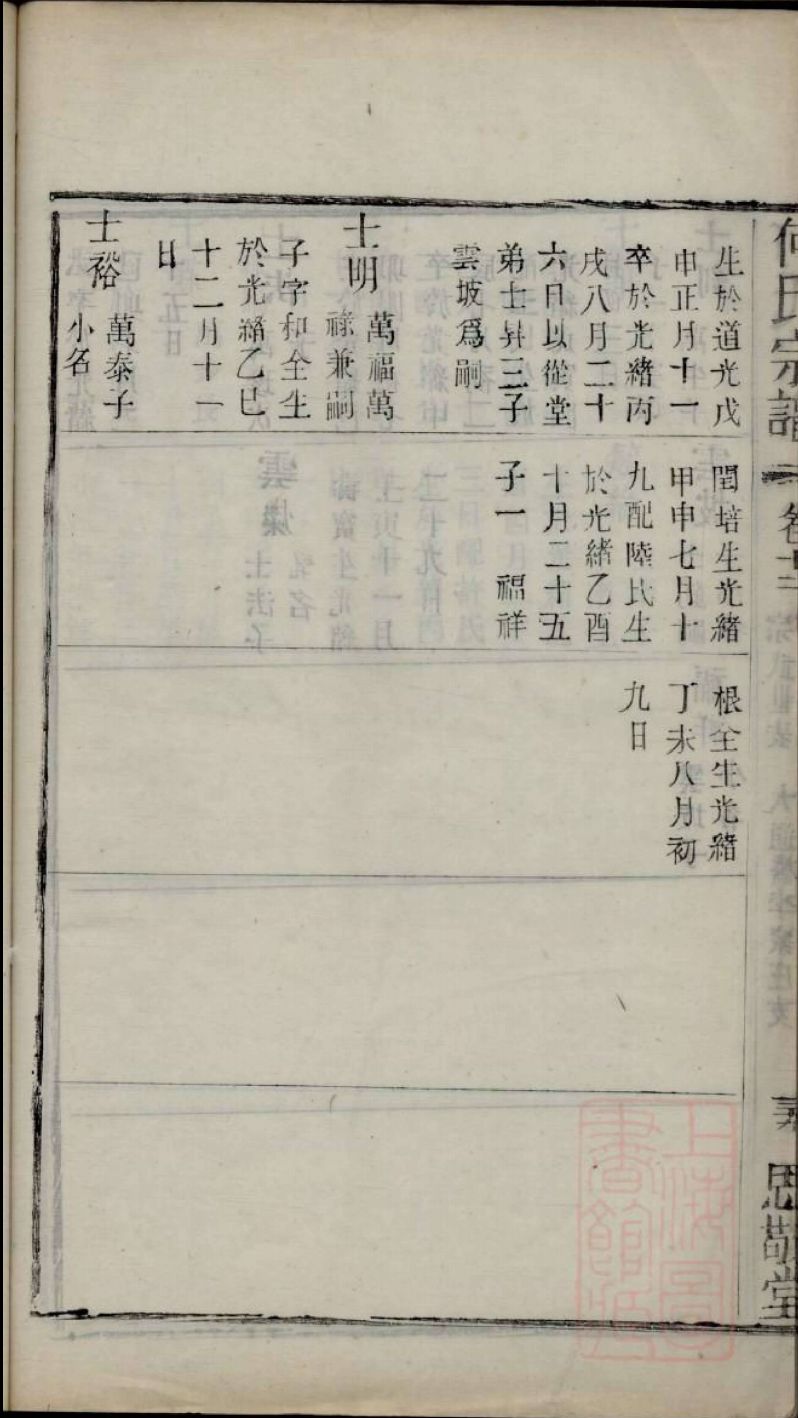 何氏宗譜
卷十二
思敬堂
生於道光戊
申正月十一
卒於光緒丙
戌八月二十
六日以從堂
弟士昇三子
雲坡爲嗣
士明 萬福萬
祿兼嗣
子字和全生
於光緒乙巳
十二月十一
日
士裕 萬泰子
小名
閏培生光緒
甲申七月十
九配陸氏生
於光緒乙酉
十月二十五
子一 福祥
根全生光緒
丁未八月初
九日
上海圖
書館藏